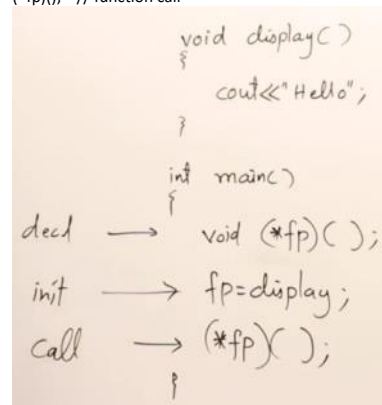 (*fp)(); // function call
void display( )
{
cout<<"Hello";
}
int main()
{
decl → void (*fp)( );
init → fp=display;
call → (*fp)( );
}